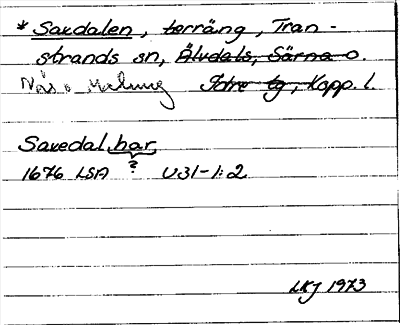 * Saxdalen, terräng, Tran-
strands sn, Älvdals, Särna o.
Nås o. Malung Idre tg, Kopp. l.
Saxedal har
?
1676 LSA U31-1:2
LKJ 1973